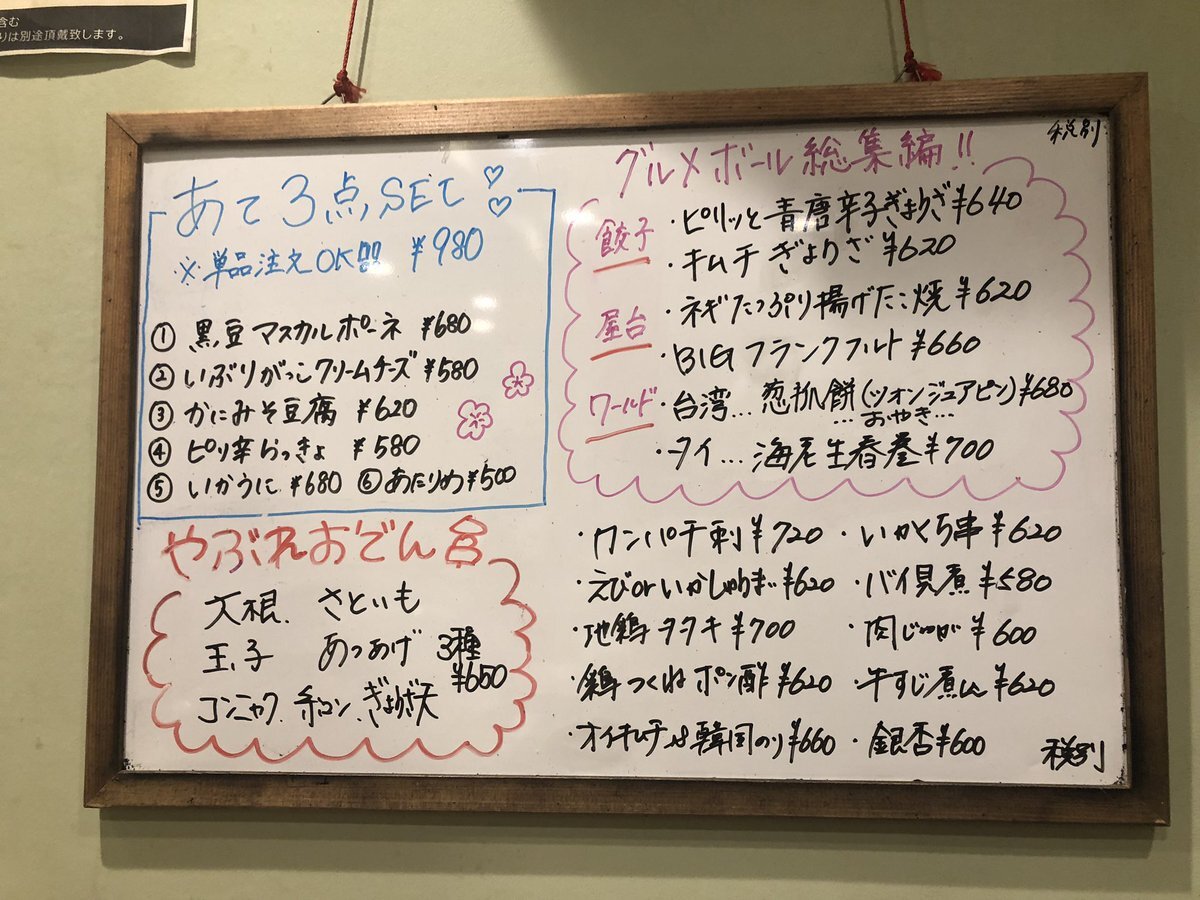 含む
りは別途頂戴致します。
税別
あて3点SET
※単品注文OK!!! ¥980
① 黒豆マスカルポーネ ¥680
② いぶりがっこクリームチーズ ¥580
③ かにみそ豆腐 ¥620
④ ピリ辛らっきょ ¥580
⑤ いかうに ¥680 ⑥ あたりめ ¥500
やぶれおでん
大根 さといも
玉子 あつあげ 3種
¥650
コンニャク、糸コン、ぎょうざ天
グルメボール総集編!!
餃子 ・ピリッと青唐辛子ぎょうざ ¥640
・キムチぎょうざ ¥620
屋台 ・ネギたっぷり揚げたこ焼 ¥620
・BIGフランクフルト ¥660
ワールド ・台湾…葱抓餅(ツォンジュアピン) ¥680
…おやき…
・タイ…海老生春巻 ¥700
・ワンパチ刺 ¥720 ・いかくち串 ¥620
・えびorいかしゅうまい ¥620 ・バイ貝煮 ¥580
・地鶏タタキ ¥700 ・肉じゃが ¥600
・鶏つくねポン酢 ¥620 ・牛すじ煮込 ¥620
・オイキムチ 韓国のり ¥660 ・銀杏 ¥600
税別